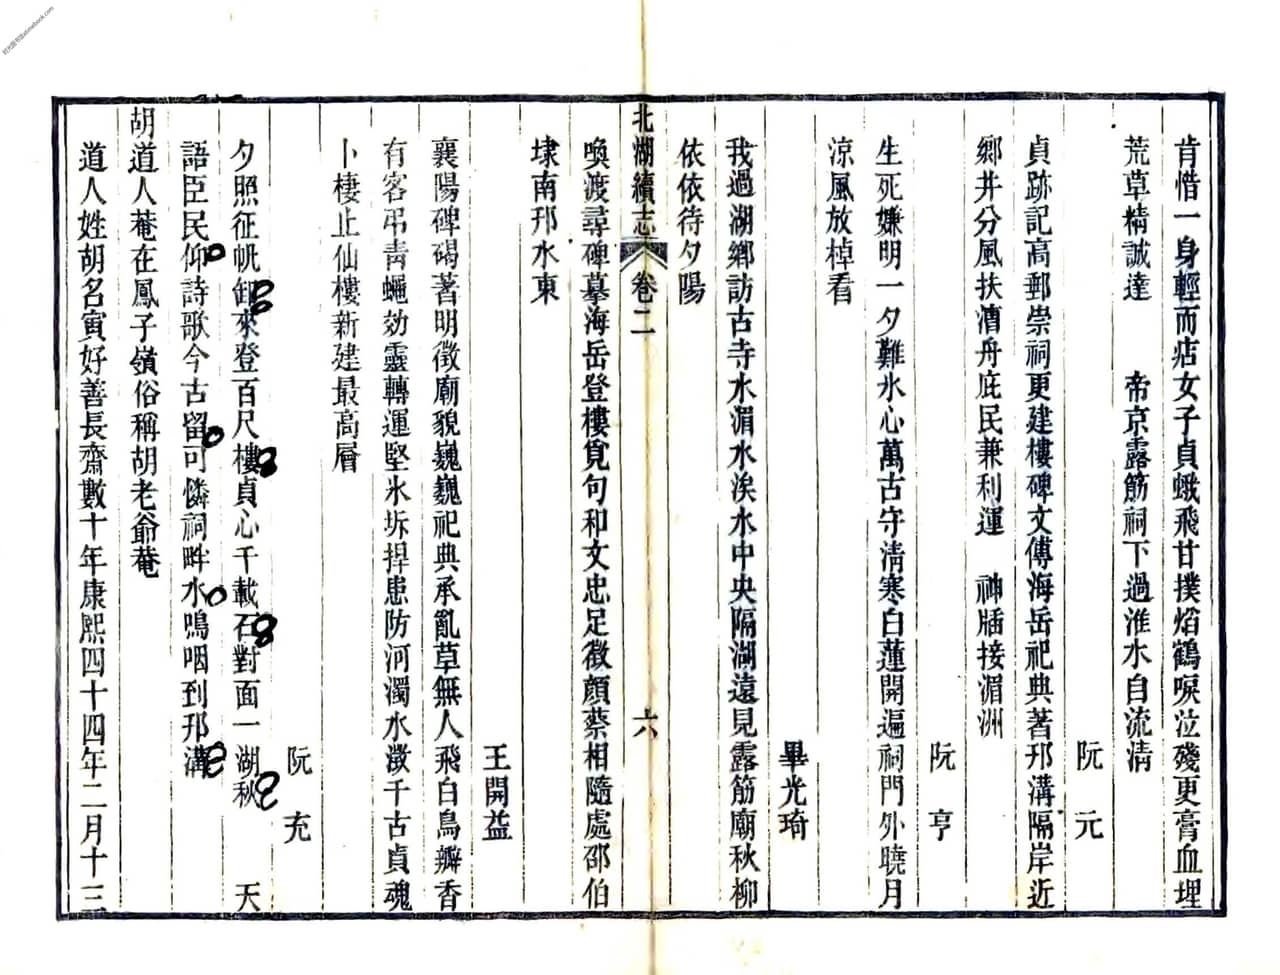 肯惜一身輕而店女子貞蛾飛甘撲焰鶴唳泣殘更膏血埋
荒草精誠達　帝京露筋祠下過淮水自流清
阮　元
貞跡記高郵崇祠更建樓碑文傳海岳祀典著邗溝隔岸近
鄉井分風扶漕舟庇民兼利運　神牐接湄洲
阮　亨
生死嫌明一夕難氷心萬古守淸寒白蓮開遍祠門外曉月
涼風放棹看
畢光琦
我過湖鄉訪古寺水湄水涘水中央隔湖遠見露筋廟秋柳
依依待夕陽
北湖續志　卷二　六
喚渡尋碑摹海岳登樓覓句和文忠足徵顏蔡相隨處邵伯
埭南邗水東
王開益
襄陽碑碣著明徵廟貌巍巍祀典承亂草無人飛白鳥瓣香
有客弔青蠅効靈轉運堅氷坼捍患防河濁水澂千古貞魂
卜棲止仙樓新建最高層
阮　充
夕照征帆卸來登百尺樓貞心千載石對面一湖秋　天
語臣民仰詩歌今古留可憐祠畔水嗚咽到邗溝
胡道人菴在鳳子嶺俗稱胡老爺菴
道人姓胡名寅好善長齋數十年康熙四十四年二月十三